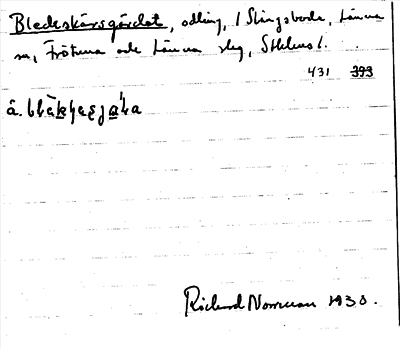 Bledeskärsgärdet, odling, / Slingsboda, Länna
sn, Frötuna och Länna slg, Sthlms l.
431 393
å.
Rickard Norrman 1930.